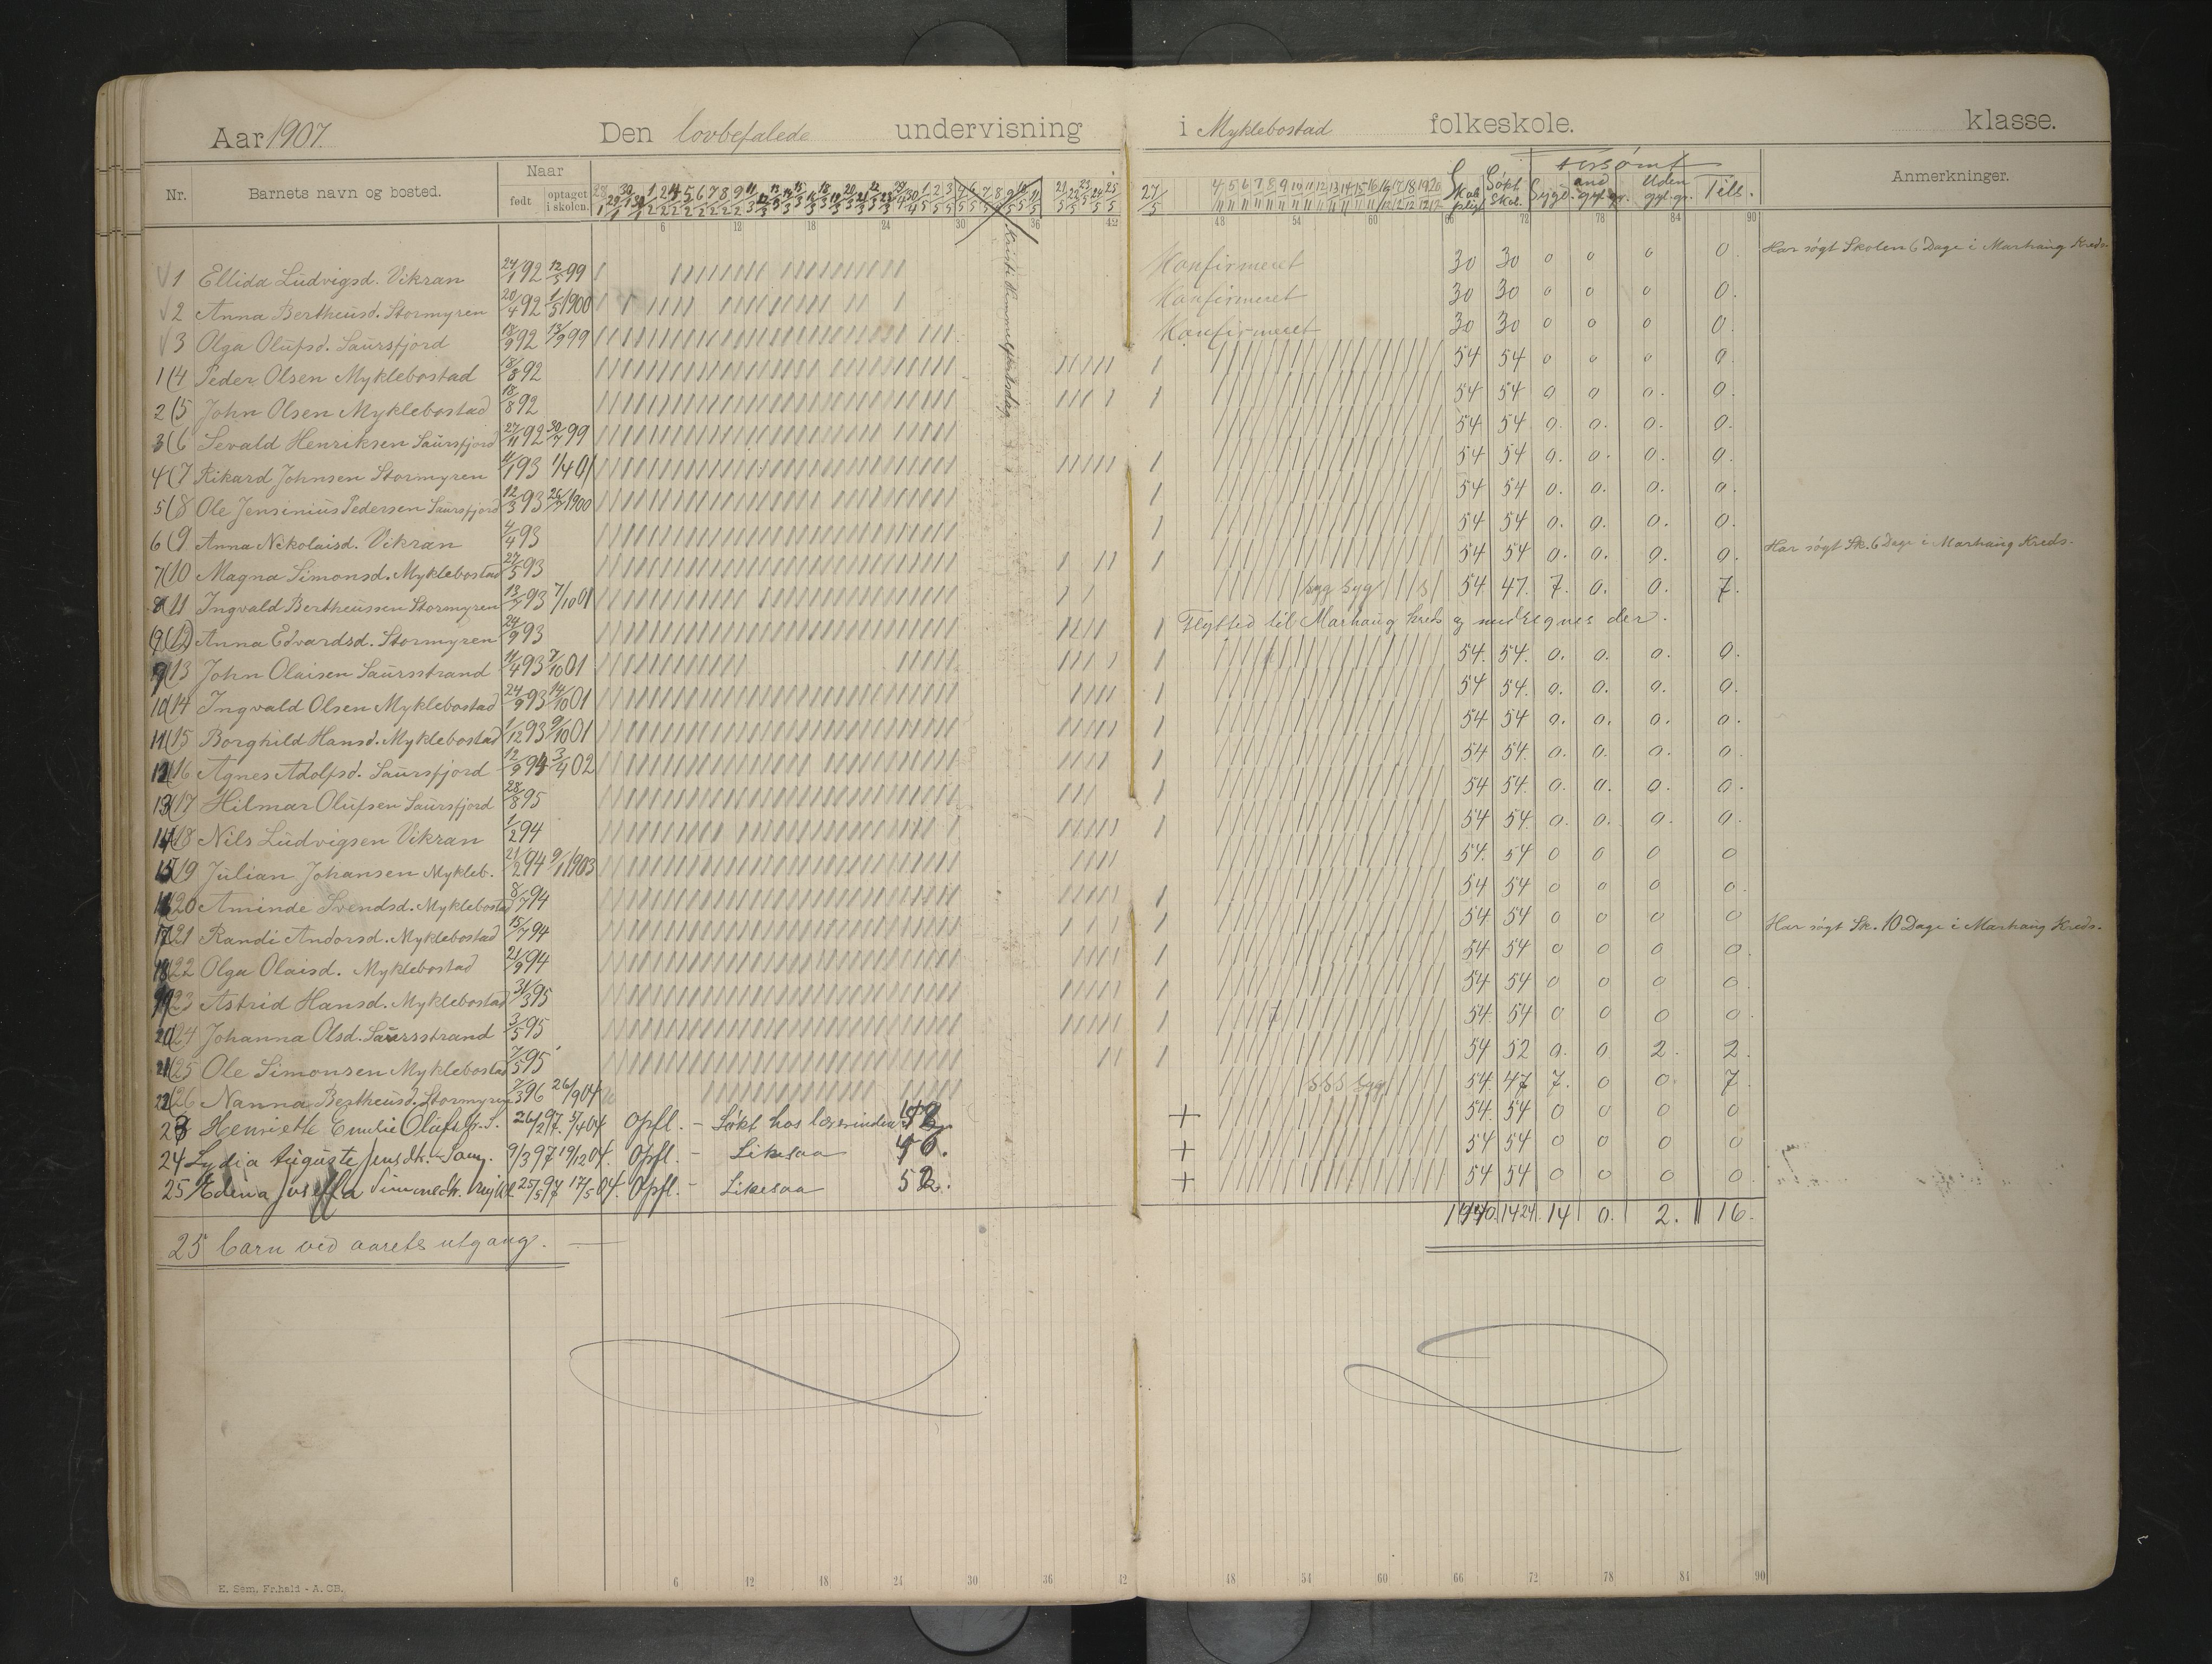 Aar 1907. Den lovbefalede undervisning i Myklebostad folkeskole. klasse.
Nr. Barnets navn og bosted. Naar født optaget i skolen. Skol. pligt Søkt skol. Forsømt Sygd. and gyl. gr. Uden gyl. gr. Tils. Anmerkninger.
6 12 18 24 30 36 42 48 54 60 66 72 78 84 90
Kristi Himmelfartsdag
1 Ellida Ludvigsd. Vikran 24/1 92 12/5 99 Konfirmeret 30 30 0 0 0 0. Har søgt Skolen 6 Dage i Marhaug Kreds
2 Anna Bertheusd. Stormyren 20/4 92 1/5 1900 Konfirmeret 30 30 0 0 0 0.
3 Olga Olufsd. Saursfjord 18/9 92 13/9 99 Konfirmeret 30 30 0 0 0 0.
1 (4 Peder Olsen Myklebostad 18/8 92 54 54 0 0 0 0.
2 (5 John Olsen Myklebostad 18/8 92 54 54 0 0 0. 0.
3 (6 Sevald Henriksen Saursfjord 27/11 92 30/7 99 54 54 0. 0. 0. 0.
4 (7 Rikard Johnsen Stormyren 11/1 93 1/4 01 54 54 0. 0. 0. 0.
5 (8 Ole Jensenius Pedersen Saursfjord 12/3 93 1900 54 54 0. 0. 0. 0.
6 (9 Anna Nikolaisd. Vikran 4/4 93 54 54 0. 0. 0. 0.
7 (10 Magna Simonsd. Myklebostad 27/5 93 54 54 0. 0. 0. 0. Har søgt Sk. 6 Dage i Marhaug Kreds.
8 (11 Ingvald Bertheussen Stormyren 93 7/10 01 syg syg s 54 47. 7. 0. 0. 7.
(9 (12) Anna Edvardsd. Stormyren 24/9 93 Flytted til Marhaug kreds og medregnes der.
9 (13 John Olaisen Saursstrand 11/4 93 7/10 01 54. 54. 0. 0. 0. 0.
10 (14 Ingvald Olsen Myklebostad 24/9 93 14/10 01 54 54. 0. 0. 0. 0.
11 (15 Borghild Hansd. Myklebostad 1/12 93 9/10 01 54 54 0. 0. 0. 0.
12 (16 Agnes Adolfsd. Saursfjord 12/9 94 3/4 02 54 54. 0. 0. 0. 0.
13 (17 Hilmar Olufsen Saursfjord 28/8 95 54 54. 0. 0. 0. 0.
14 (18 Nils Ludvigsen Vikran 1/2 94 54 54. 0. 0. 0. 0.
15 (19 Julian Johansen Mykleb. 21/2 94 9/1 1903 54. 54 0 0 0 0
16 (20 Aminde Svendsd. Myklebostad 8/7 94 54 54 0 0 0 0.
17 (21 Randi Andorsd. Myklebostad 15/7 94 54 54 0 0 0 0 Har søgt Sk. 10 Dage i Marhaug Kreds.
18 (22 Olga Olaisd. Myklebostad 21/9 94 54 54 0 0 0 0
19 (23 Astrid Hansd. Myklebostad 31/3 95 54 54 0 0 0 0.
20 (24 Johanna Olsd. Saursstrand 3/5 95 54 54 0 0 0 0.
21 (25 Ole Simonsen Myklebostad 7/5 95 54 52 0. 0 2. 2.
22 (26 Nanna Bertheusd. Stormyren 7/3 96 26/9 04 s s s syg 54. 47 7. 0 0. 7
23 Henriette Emelie Olufsdtr. S. 26/2 97. 5/4 04 Opfl. - Søkt hos lærerinden 52 + 54. 54 0 0 0 0
24 Lydia Auguste Jensdtr. Saurs. 9/3 97 19/12 04. Opfl. - Likesaa 40. + 54 54 0 0 0 0.
25 Edina Josefa Simonsdtr. Mykl. 25/5 97 17/5 04. Opfl. - Likesaa 52. + 54 54 0 0 0 0.
1440. 1424. 14 0. 2. 16.
25 barn ved aarets utgang.
6 12 18 24 30 36 42 48 54 60 66 72 78 84 90
E. Sem, Fr.hald - A. CB.